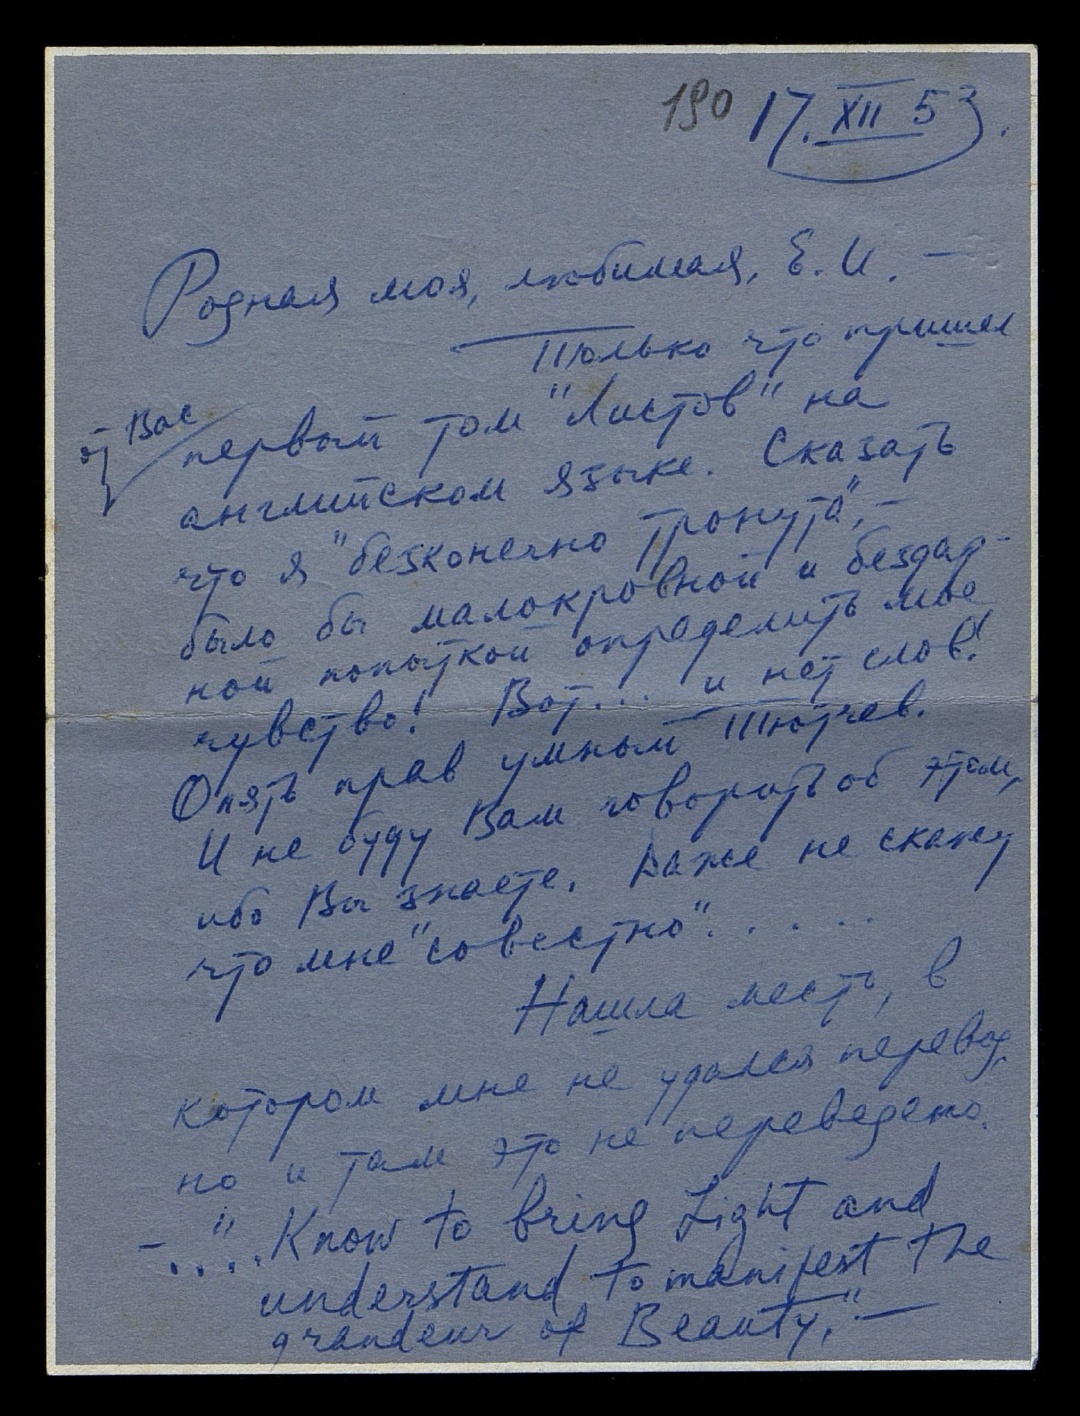 190 17. XII 53.
Родная моя, любимая, Е. И. —
Только что пришел
от Вас
первый том "Листов" на
английском языке. Сказать
что я "безконечно тронута", —
было бы малокровной и бездар-
ной попыткой определить мое
чувство! Вот... и нет слов!
Опять прав умный Тютчев.
И не буду Вам говорить об этом,
ибо Вы знаете. Даже не скажу
что мне "совестно". . . . .
Нашла место, в
котором мне не удался перевод,
но и там это не переведено.
— ". . . . Know to bring Light and
understand to manifest the
grandeur of Beauty," —